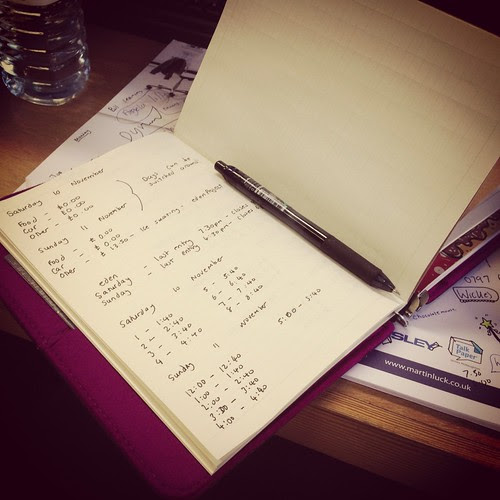 Saturday 10 November
Food - £0.00
Car - £0.00
Other - £0.00
Days can be switched around
Sunday 11 November
Food - £0.00
Car - £0.00
Other - £13.50 - ice skating - eden Project
eden
Saturday - last entry 7.30pm - closes
Sunday - last entry 6.30pm - closes
Saturday 10 November
1 - 1:40
2 - 2:40
3 - 3:40
4 - 4:40
5 - 5:40
6 - 6:40
7 - 7:40
8 - 8:40
Sunday 11 November
12:00 - 12:40
1:00 - 1:40
2:00 - 2:40
3:00 - 3:40
4:00 - 4:40
5:00 - 5:40
0797
Wickes
SLEY
Talk Paper
7.50
www.martinluck.co.uk